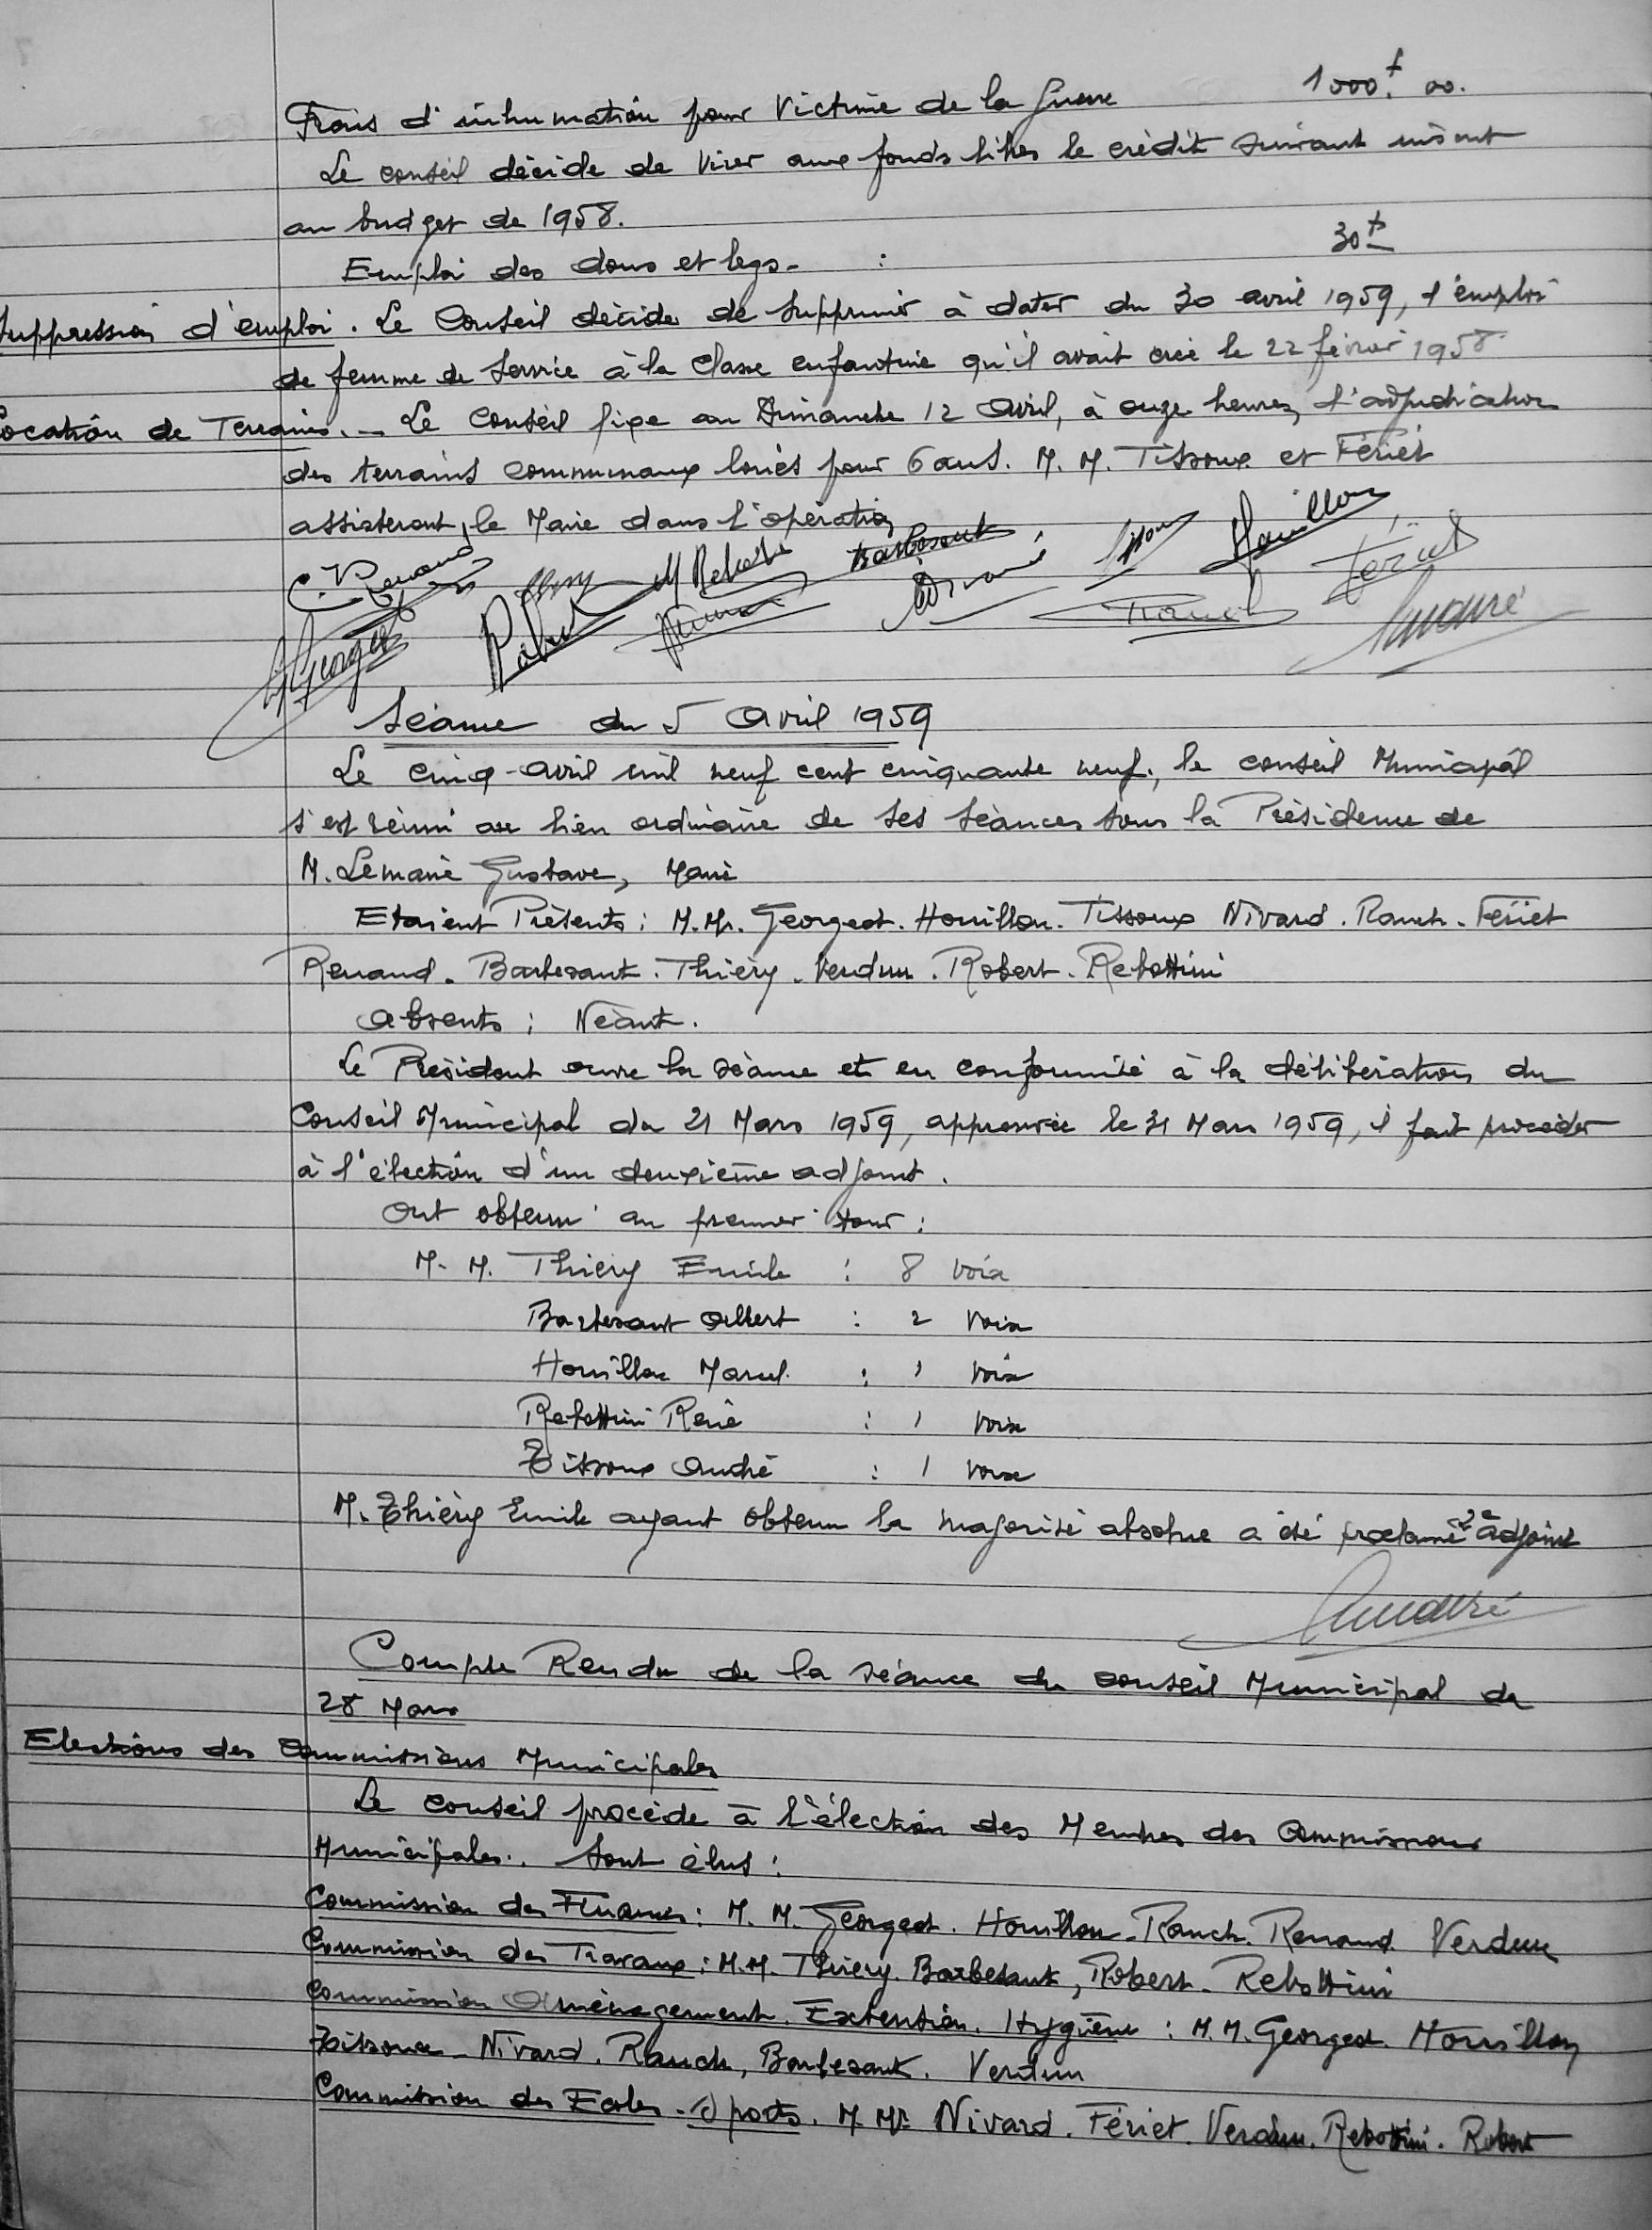 Frais d'inhumation pour Victime de la Guerre 1000f. 00.
Le conseil décide de virer aux fonds libres le crédit suivant inscrit
au budget de 1958.
Emploi des dons et legs - : 30f
Suppression d'emploi. Le Conseil décide de supprimer à dater du 30 avril 1959, l'emploi
de femme de service à la classe enfantine qu'il avait créé le 22 février 1958
Location de Terrains. - Le Conseil fixe au Dimanche 12 Avril, à onze heures, l'adjudication
des terrains communaux loués pour 6 ans. M. M. Tissoux et Fériet
assisteront le Maire dans l'opération
C. Renaud Thiery M Rebottini Barbesant Nivard Tissoux Houillon Fériet
Georgeot Robert Verdun Rauch Lemaire
Séance du 5 Avril 1959
Le cinq avril mil neuf cent cinquante neuf, le conseil Municipal
s'est réuni au lieu ordinaire de ses séances sous la Présidence de
M. Lemaire Gustave, Maire
Etaient Présents : M. M. Georgeot. Houillon. Tissoux Nivard. Rauch. Fériet
Renaud. Barbesant. Thiéry. Verdun. Robert. Rebottini
Absents : Néant.
Le Président ouvre la séance et en conformité à la délibération du
Conseil Municipal du 21 Mars 1959, approuvée le 31 Mars 1959, il fait procéder
à l'élection d'un deuxième adjoint.
Ont obtenu au premier tour :
M. M. Thiéry Emile : 8 voix
Barbesant Albert : 2 voix
Houillon Marcel : 1 voix
Rebottini René : 1 voix
Tissoux André : 1 voix
M. Thiéry Emile ayant obtenu la majorité absolue a été proclamé 2e adjoint
Lemaire
Compte Rendu de la séance du conseil Municipal du
28 Mars
Elections des Commissions Municipales
Le conseil procède à l'élection des Membres des Commissions
Municipales. Sont élus :
Commission des Finances : M. M. Georgeot. Houillon. Rauch. Renaud. Verdun
Commission des Travaux : M. M. Thiery. Barbesant, Robert. Rebottini
Commission Aménagement. Extension. Hygiène : M. M. Georgeot. Houillon
Tissoux. Nivard. Rauch, Barbesant. Verdun
Commission des Ecoles. Sports. M. M. Nivard. Fériet. Verdun. Rebottini. Robert